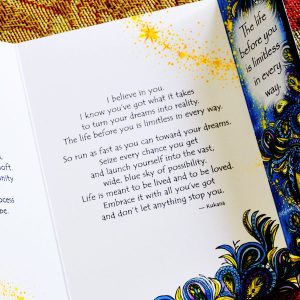 I believe in you.
I know you've got what it takes
to turn your dreams into reality.
The life before you is limitless in every way.
So run as fast as you can toward your dreams.
Seize every chance you get
and launch yourself into the vast,
wide, blue sky of possibility.
Life is meant to be lived and to be loved.
Embrace it with all you've got
and don't let anything stop you.
— Kukana
The life
before you
is limitless
in every
way.